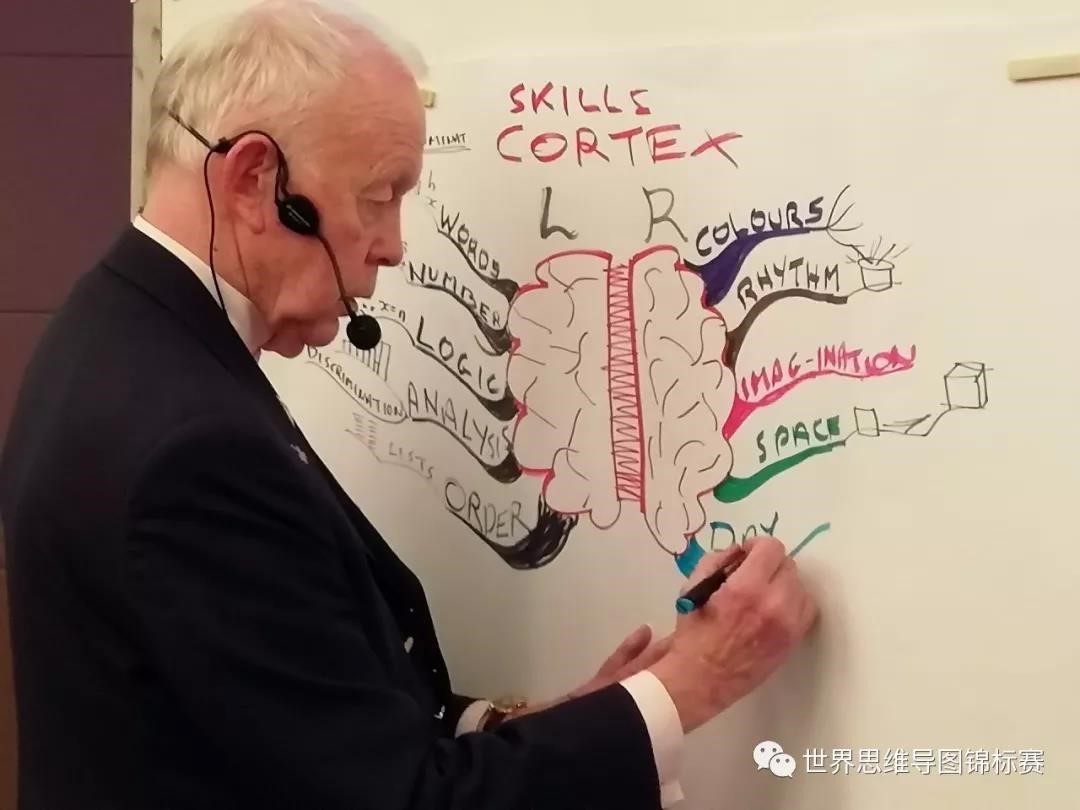 SKILLS
CORTEX
L R
WORDS
NUMBER
x=n
LOGIC
ANALYSIS
DISCRIMINATION
LISTS
ORDER
COLOURS
RHYTHM
IMAG-INATION
SPACE
DAY
世界思维导图锦标赛